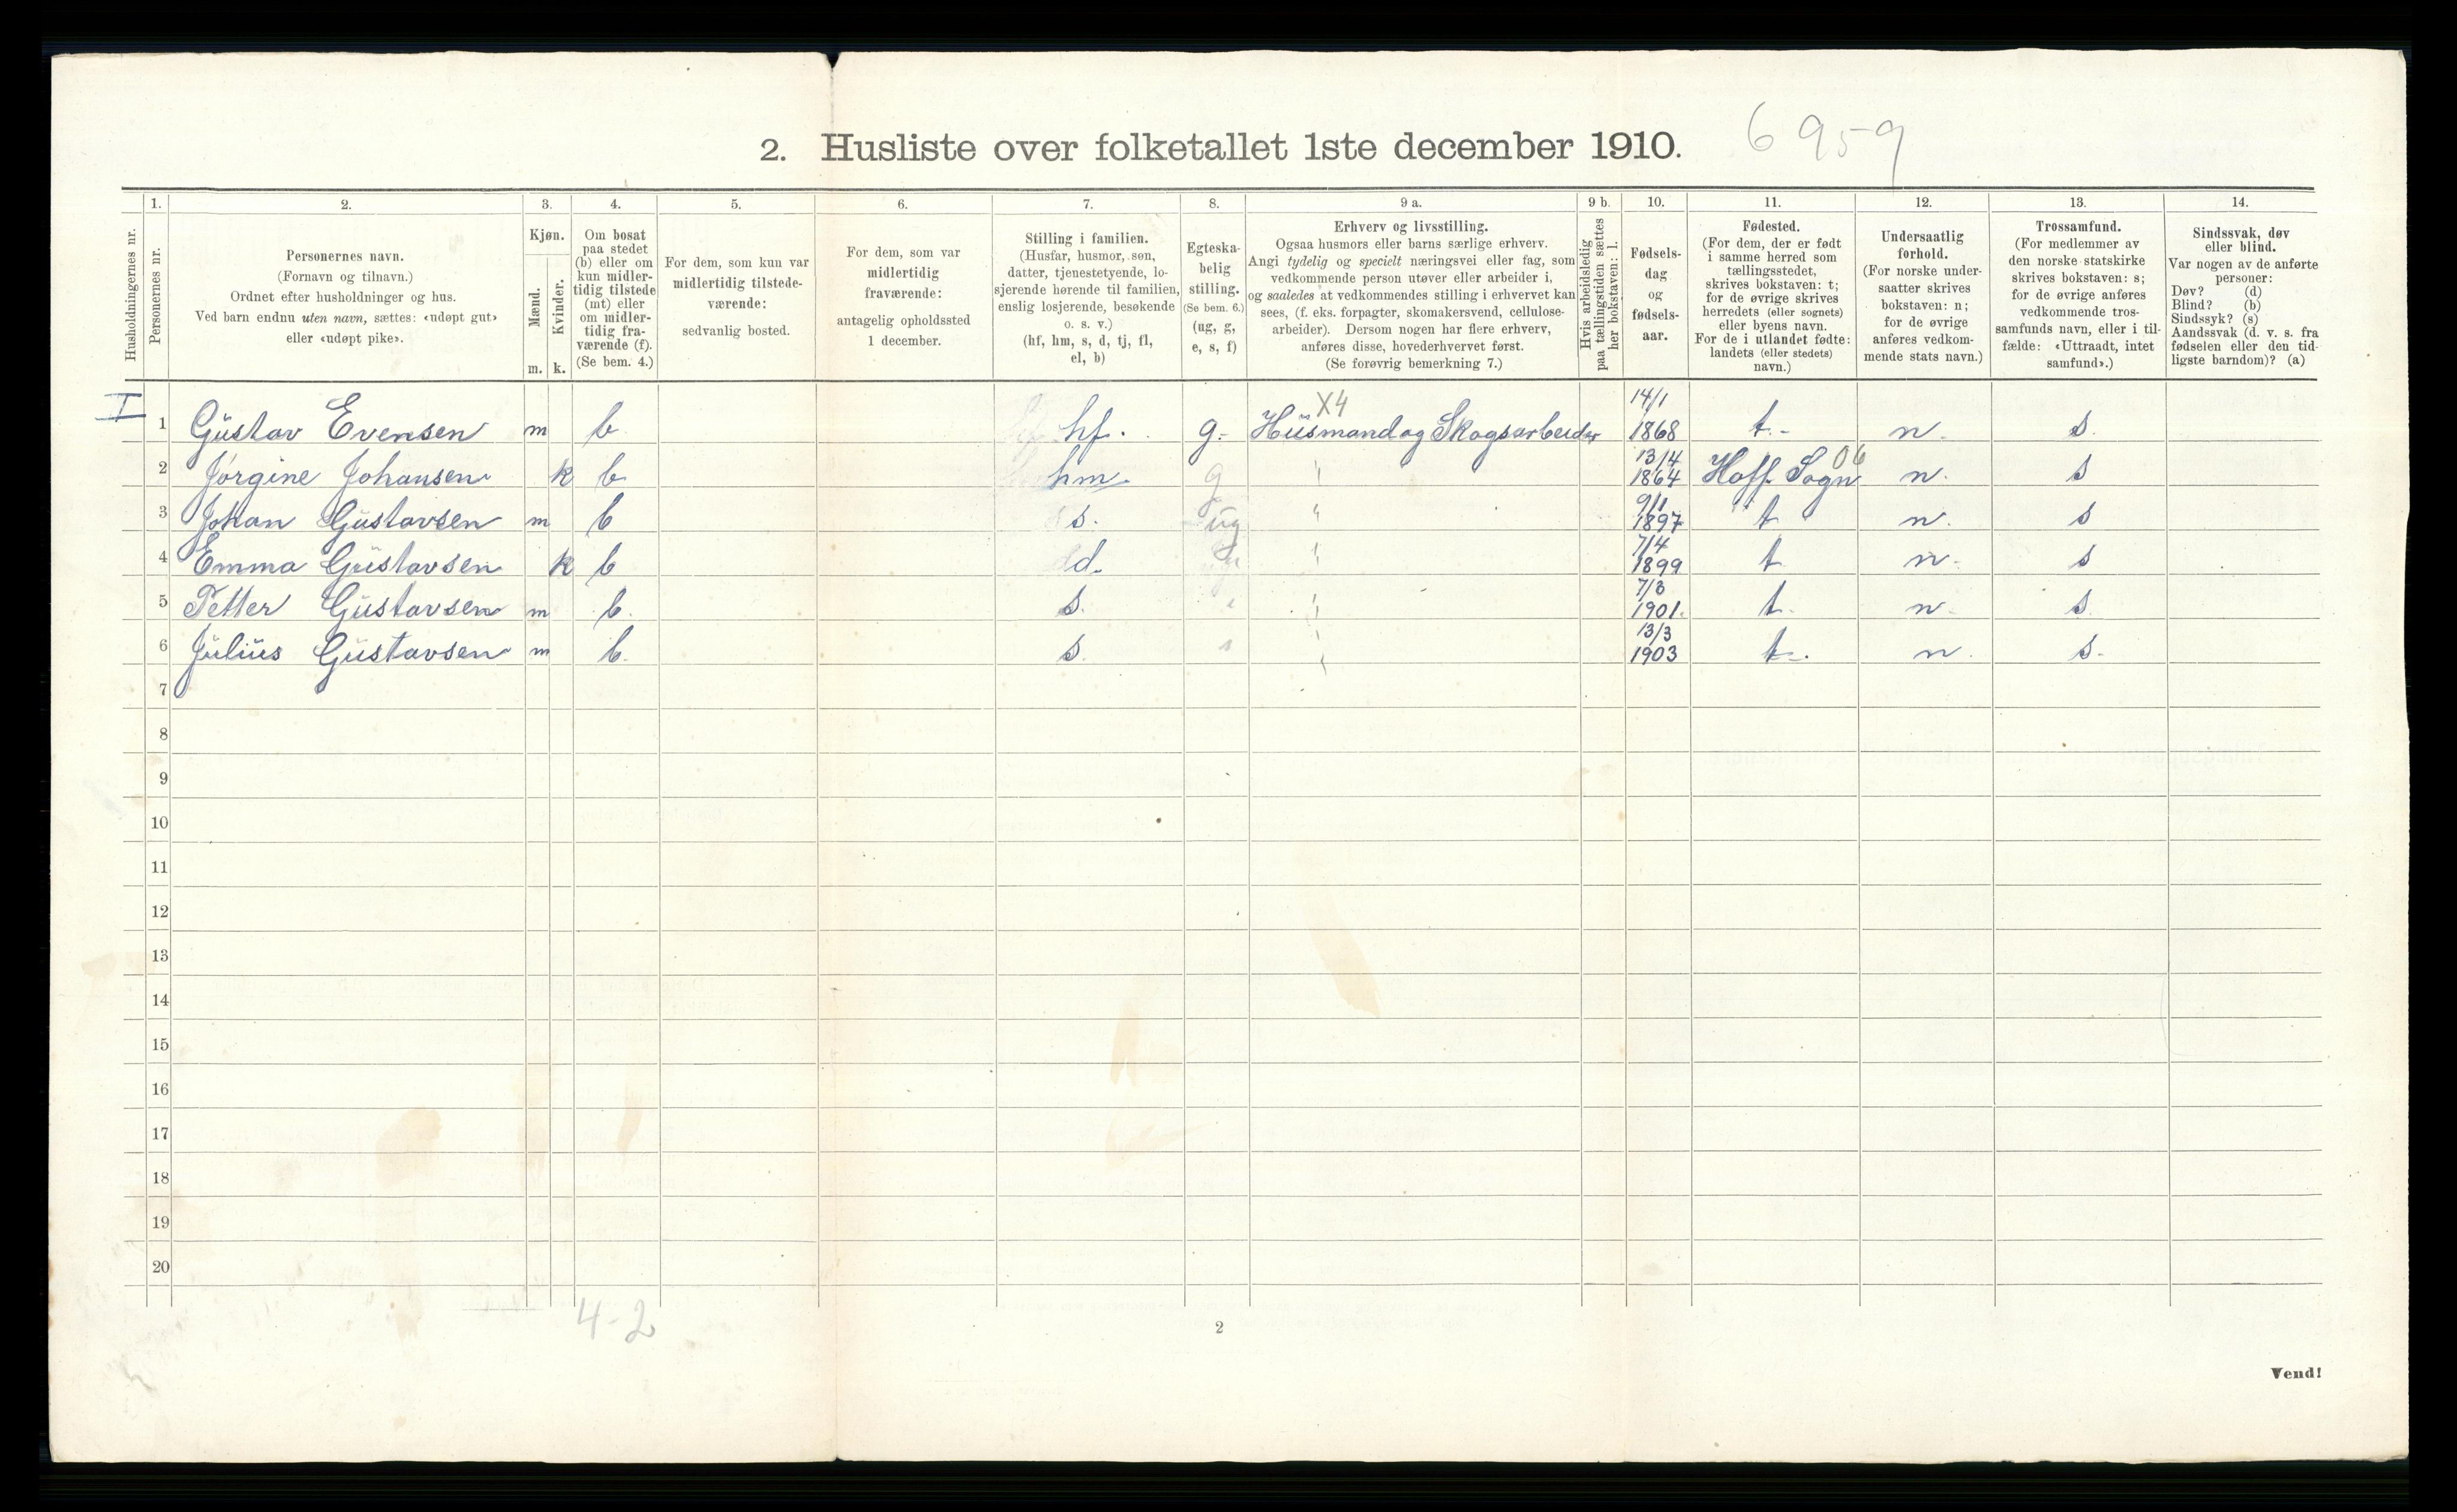 2. Husliste over folketallet 1ste december 1910. 6959
Husholdningernes nr.
1.
Personernes nr.
2.
Personernes navn.
(Fornavn og tilnavn.)
Ordnet efter husholdninger og hus.
Ved barn endnu uten navn, sættes: «udøpt gut»
eller «udøpt pike».
3.
Kjøn.
Mænd.
Kvinder.
m. k.
4.
Om bosat
paa stedet
(b) eller om
kun midler-
tidig tilstede
(mt) eller
om midler-
tidig fra-
værende (f).
(Se bem. 4.)
5.
For dem, som kun var
midlertidig tilstede-
værende:
sedvanlig bosted.
6.
For dem, som var
midlertidig
fraværende:
antagelig opholdssted
1 december.
7.
Stilling i familien.
(Husfar, husmor, søn,
datter, tjenestetyende, lo-
sjerende hørende til familien,
enslig losjerende, besøkende
o. s. v.)
(hf, hm, s, d, tj, fl,
el, b)
8.
Egteska-
belig
stilling.
(Se bem. 6.)
(ug, g,
e, s, f)
9 a.
Erhverv og livsstilling.
Ogsaa husmors eller barns særlige erhverv.
Angi tydelig og specielt næringsvei eller fag, som
vedkommende person utøver eller arbeider i,
og saaledes at vedkommendes stilling i erhvervet kan
sees, (f. eks. forpagter, skomakersvend, cellulose-
arbeider). Dersom nogen har flere erhverv,
anføres disse, hovederhvervet først.
(Se forøvrig bemerkning 7.)
9 b.
Hvis arbeidsledig
paa tællingstiden sættes
her bokstaven: l.
10.
Fødsels-
dag
og
fødsels-
aar.
11.
Fødested.
(For dem, der er født
i samme herred som
tællingsstedet,
skrives bokstaven: t;
for de øvrige skrives
herredets (eller sognets)
eller byens navn.
For de i utlandet fødte:
landets (eller stedets)
navn.)
12.
Undersaatlig
forhold.
(For norske under-
saatter skrives
bokstaven: n;
for de øvrige
anføres vedkom-
mende stats navn.)
13.
Trossamfund.
(For medlemmer av
den norske statskirke
skrives bokstaven: s;
for de øvrige anføres
vedkommende tros-
samfunds navn, eller i til-
fælde: «Uttraadt, intet
samfund».)
14.
Sindssvak, døv
eller blind.
Var nogen av de anførte
personer:
Døv? (d)
Blind? (b)
Sindssyk? (s)
Aandssvak (d. v. s. fra
fødselen eller den tid-
ligste barndom)? (a)
X4 14/1
I 1 Gustav Evensen m b hf. g. Husmand og Skogsarbeider 1868 t. n. s.
13/4 06
2 Jørgine Johansen k b hm. g " 1864 Hoff Sogn n. s
9/1
3 Johan Gustavsen m b s. ug " 1897 t n. s
7/4
4 Emma Gustavsen k b d. " 1899 t n. s
7/8
5 Petter Gustavsen m b. s. " " 1901. t. n. s.
13/3
6 Julius Gustavsen m b. s. " " 1903 t. n. s.
7
8
9
10
11
12
13
14
15
16
17
18
19
20
4-2
2
Vend!